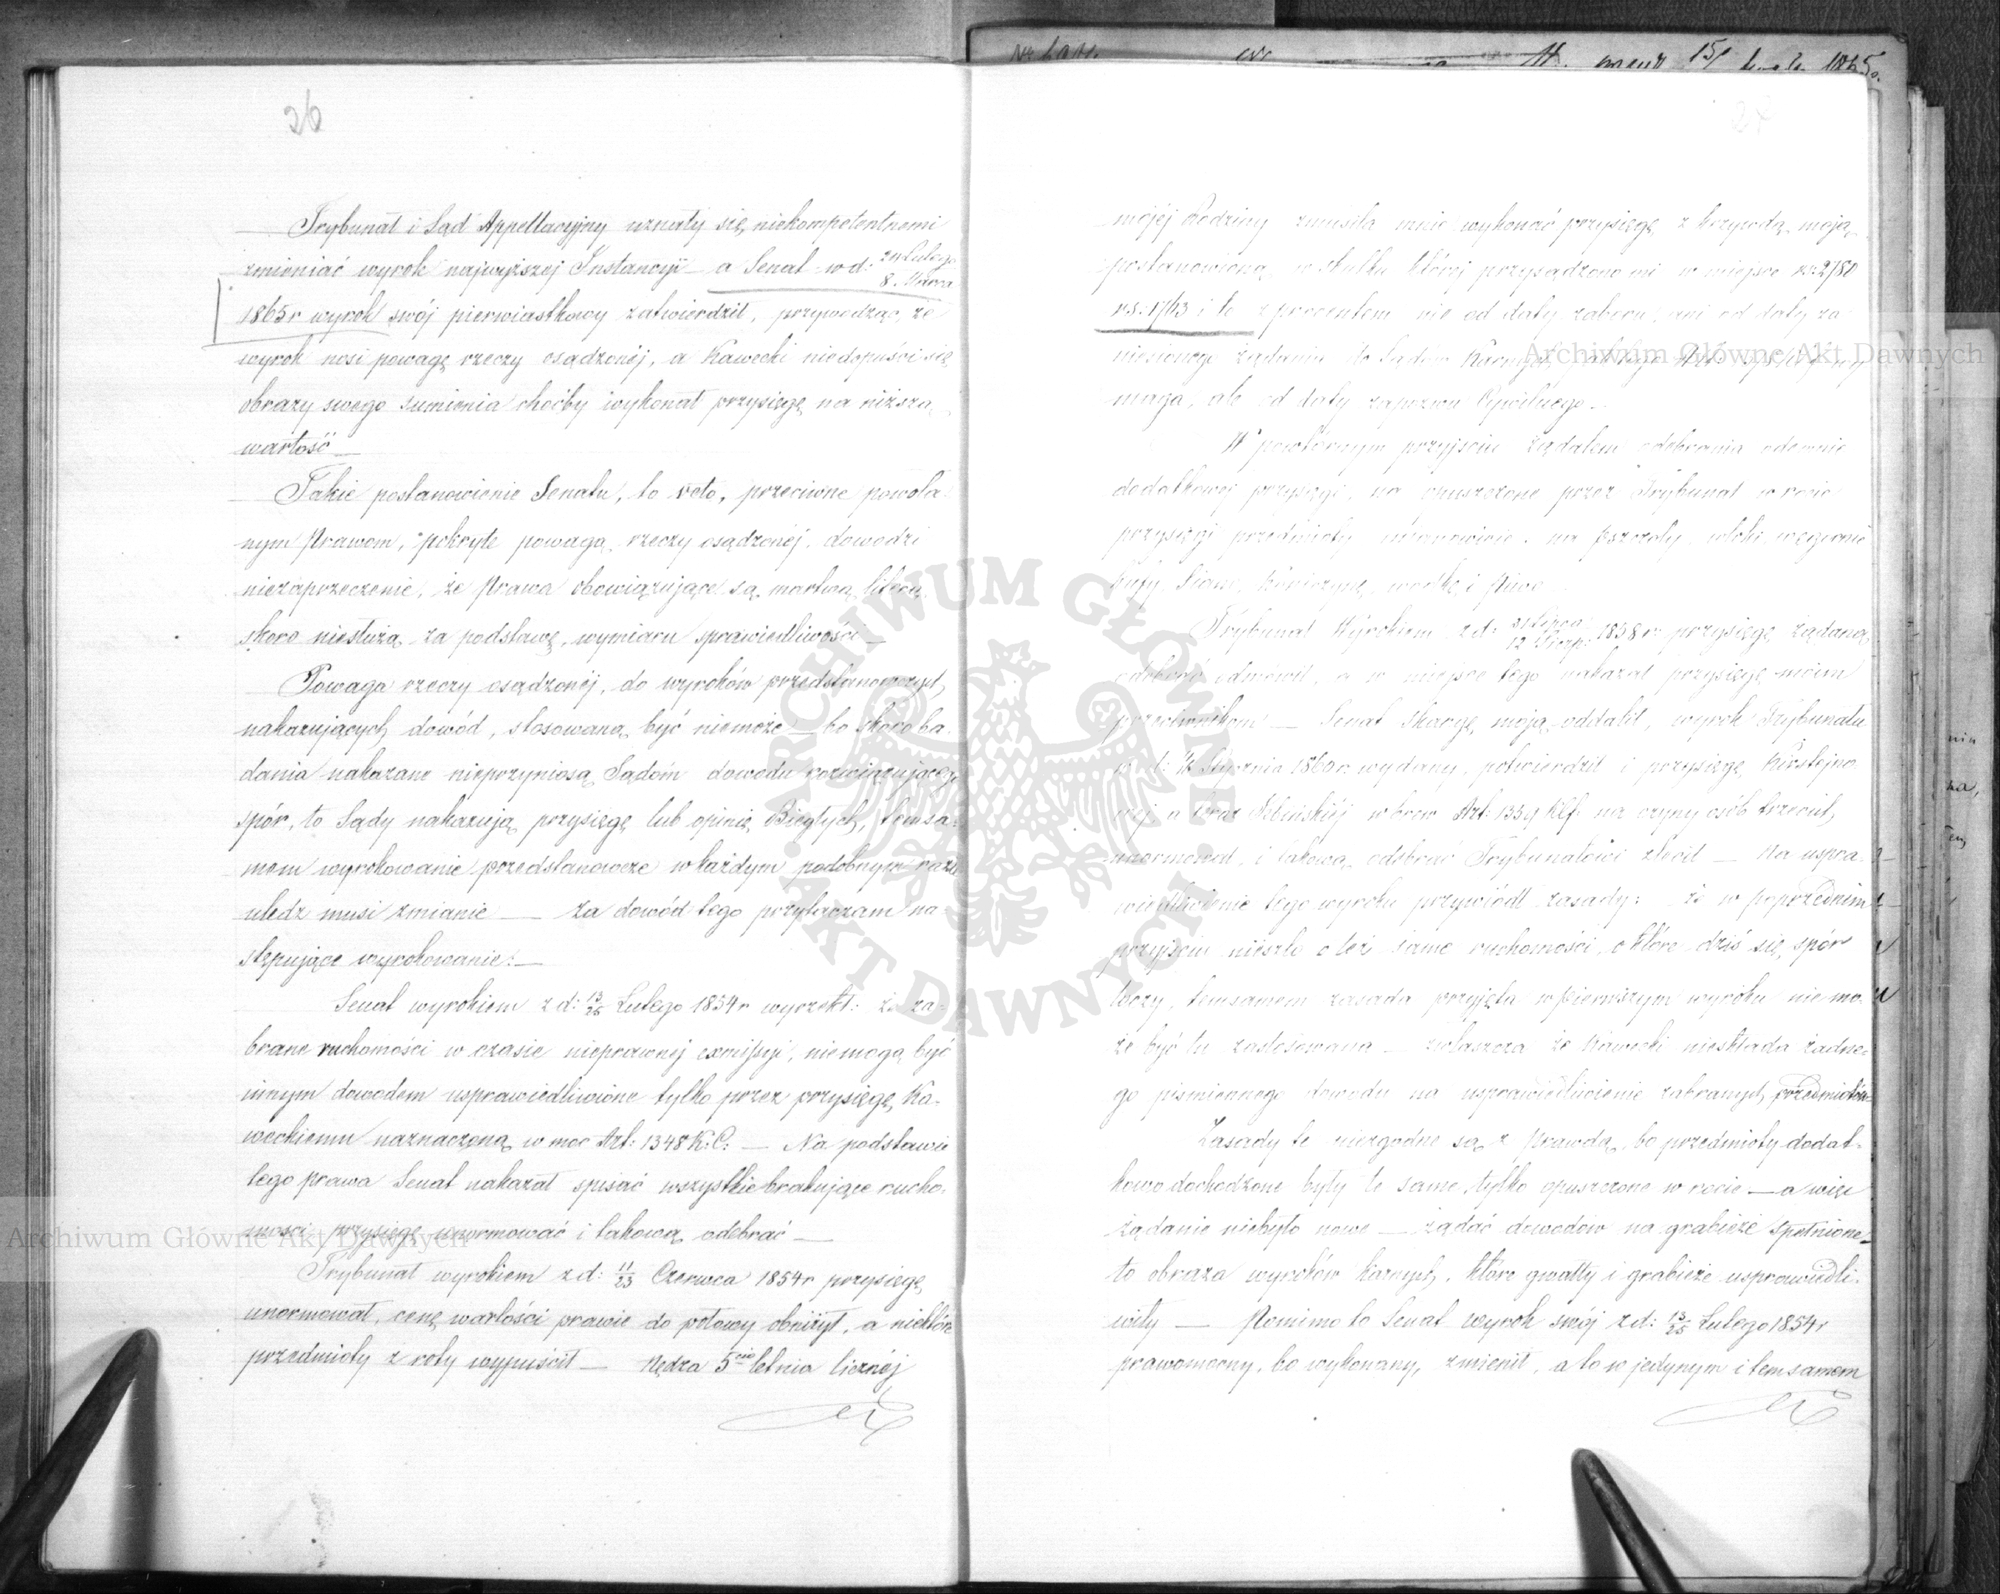 26
Trybunał i Sąd Appellacyjny uznały się niekompetentnemi
zmieniać wyrok najwyższej Instancyi – a Senat w d: 24 Lutego
8. Marca
1865 r wyrok swój pierwiastkowy zatwierdził, przywodząc, że
wyrok nosi powagę rzeczy osądzonéj, a Kawecki niedopuści się
obrazy swego sumienia choćby wykonał przysięgę na niższą
wartość –
Takie postanowienie Senatu, to veto, przeciwne powoła-
nym Prawom, pokryte powagą rzeczy osądzonéj, dowodzi
niezaprzeczenie, że Prawa obowiązujące są martwą literą,
skoro niesłużą za podstawę wymiaru sprawiedliwości –
Powaga rzeczy osądzonéj, do wyroków przedstanowczych,
nakazujących dowód, stosowaną być niemoże – bo skoro ba-
dania nakazane nieprzyniosą Sądom dowodu rozwiązującego
spór, to Sądy nakazują przysięgę lub opinię Biegłych, temsa-
mem wyrokowanie przedstanowcze w każdym podobnym razie
uledz musi zmianie — Za dowód tego przytaczam na-
stępujące wyrokowanie: –
Senat wyrokiem z d: 13/25 Lutego 1854 r wyrzekł: że za-
brane ruchomości w czasie nieprawnej exmissyi, niemogą być
innym dowodem usprawiedliwione tylko przez przysięgę Ka-
weckiemu naznaczoną w moc Art: 1348 K: C: — Na podstawie
tego prawa Senat nakazał spisać wszystkie brakujące rucho-
mości przysięgę unormować i takową odebrać –
Trybunał wyrokiem z d: 11/23 Czerwca 1854 r przysięgę
unormował, cenę wartości prawie do połowy obniżył, a niektóre
przedmioty z roty wypuścił – Nędza 5cio letnia licznéj
mojéj Rodziny zmusiła mnie wykonać przysięgę z krzywdą moją
postanowioną, w skutku któréj przysądzono mi w miejsce rs: 2780
rs: 1713 i to z procentem nie od daty zaboru, ani od daty za-
niesionego żądania do Sądów Karnych,
maga, ale od daty zapozwu Cywilnego. –
W powtórnym przyjściu żądałem odebrania odemnie
dodatkowej przysięgi, na opuszczone przez Trybunał w rocie
przysięgi przedmioty mianowicie: na pszczoły,
Siano, Koniczynę, wódkę i Piwo
Trybunał Wyrokiem z d: 31 Lipca
12 Sierp: 1858 r: przysięgę żądaną
odebrać odmówił, a w miejsce tego nakazał przysięgę moim
przeciwnikom — Senat skargę moją oddalił, wyrok Trybunału
Stycznia 1860 r: wydany, potwierdził i przysięgę
wbrew Art: 1359 na czyny osób trzecich,
unormował, i takową odebrać Trybunałowi zlecił — Na uspra-
wiedliwienie tego wyroku przywiódł zasady: że w poprzednim
przyjściu nieszło o też same ruchomości, o które dziś się spór
toczy, temsamem zasada przyjęta w pierwszym wyroku niemo-
że być tu zastosowaną – zwłaszcza że Kawecki nieskłada żadne-
go piśmiennego dowodu na usprawiedliwienie zabranych przedmiotów
Zasady te niezgodne są z Prawdą, bo przedmioty dodat-
kowo dochodzone były te same, tylko opuszczone w rocie – a więc
żądanie niebyło nowe — żądać dowodów na grabieże spełnione
to obraza wyroków Karnych, które gwałty i grabieże usprawiedli-
wiły — Pomimo to Senat wyrok swój z d: 13/25 Lutego 1854 r
prawomocny, bo wykonany, zmienił, a to w jedynym i temsamem